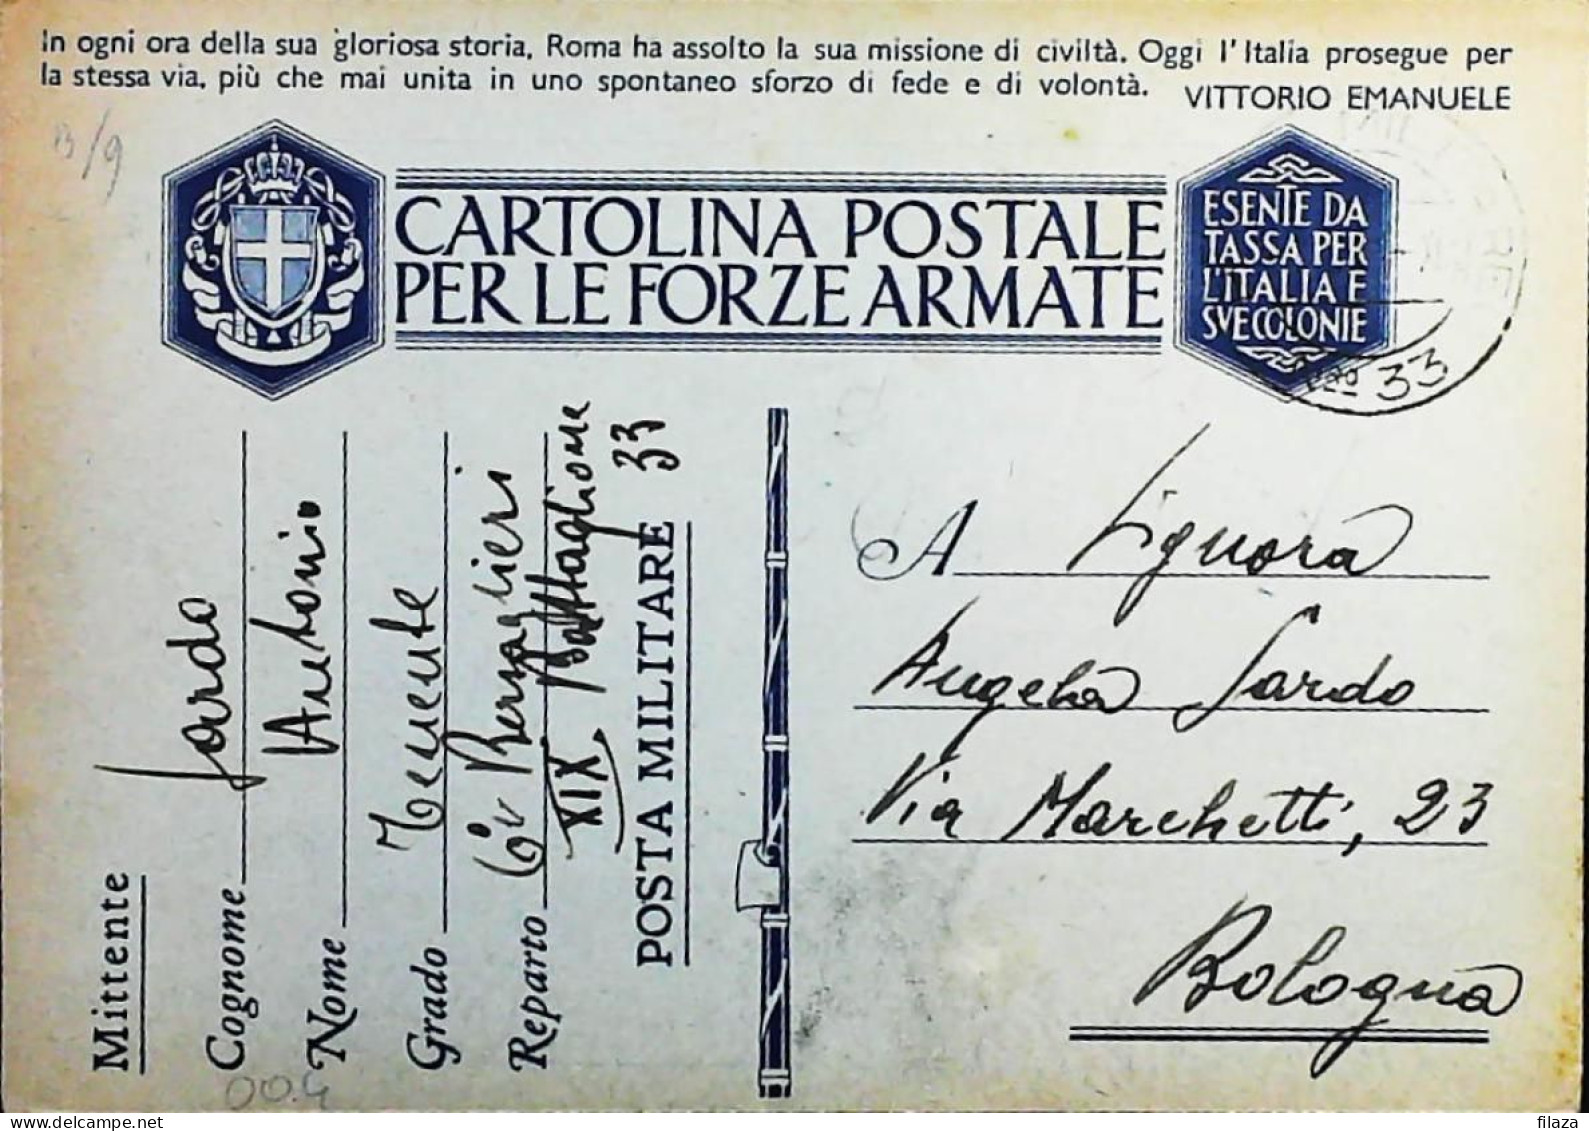 In ogni ora della sua gloriosa storia, Roma ha assolto la sua missione di civiltà. Oggi l'Italia prosegue per
la stessa via, più che mai unita in uno spontaneo sforzo di fede e di volontà.
VITTORIO EMANUELE
B/9
CARTOLINA POSTALE
PER LE FORZE ARMATE
ESENTE DA
TASSA PER
L'ITALIA E
SVE COLONIE
33
Mittente
Cognome Sardo
Nome Antonio
Grado Tenente
Reparto 6° Bersaglieri
XIX Battaglione
POSTA MILITARE 33
A Signora
Angela Sardo
Via Marchetti, 23
Bologna
00.4
filaza